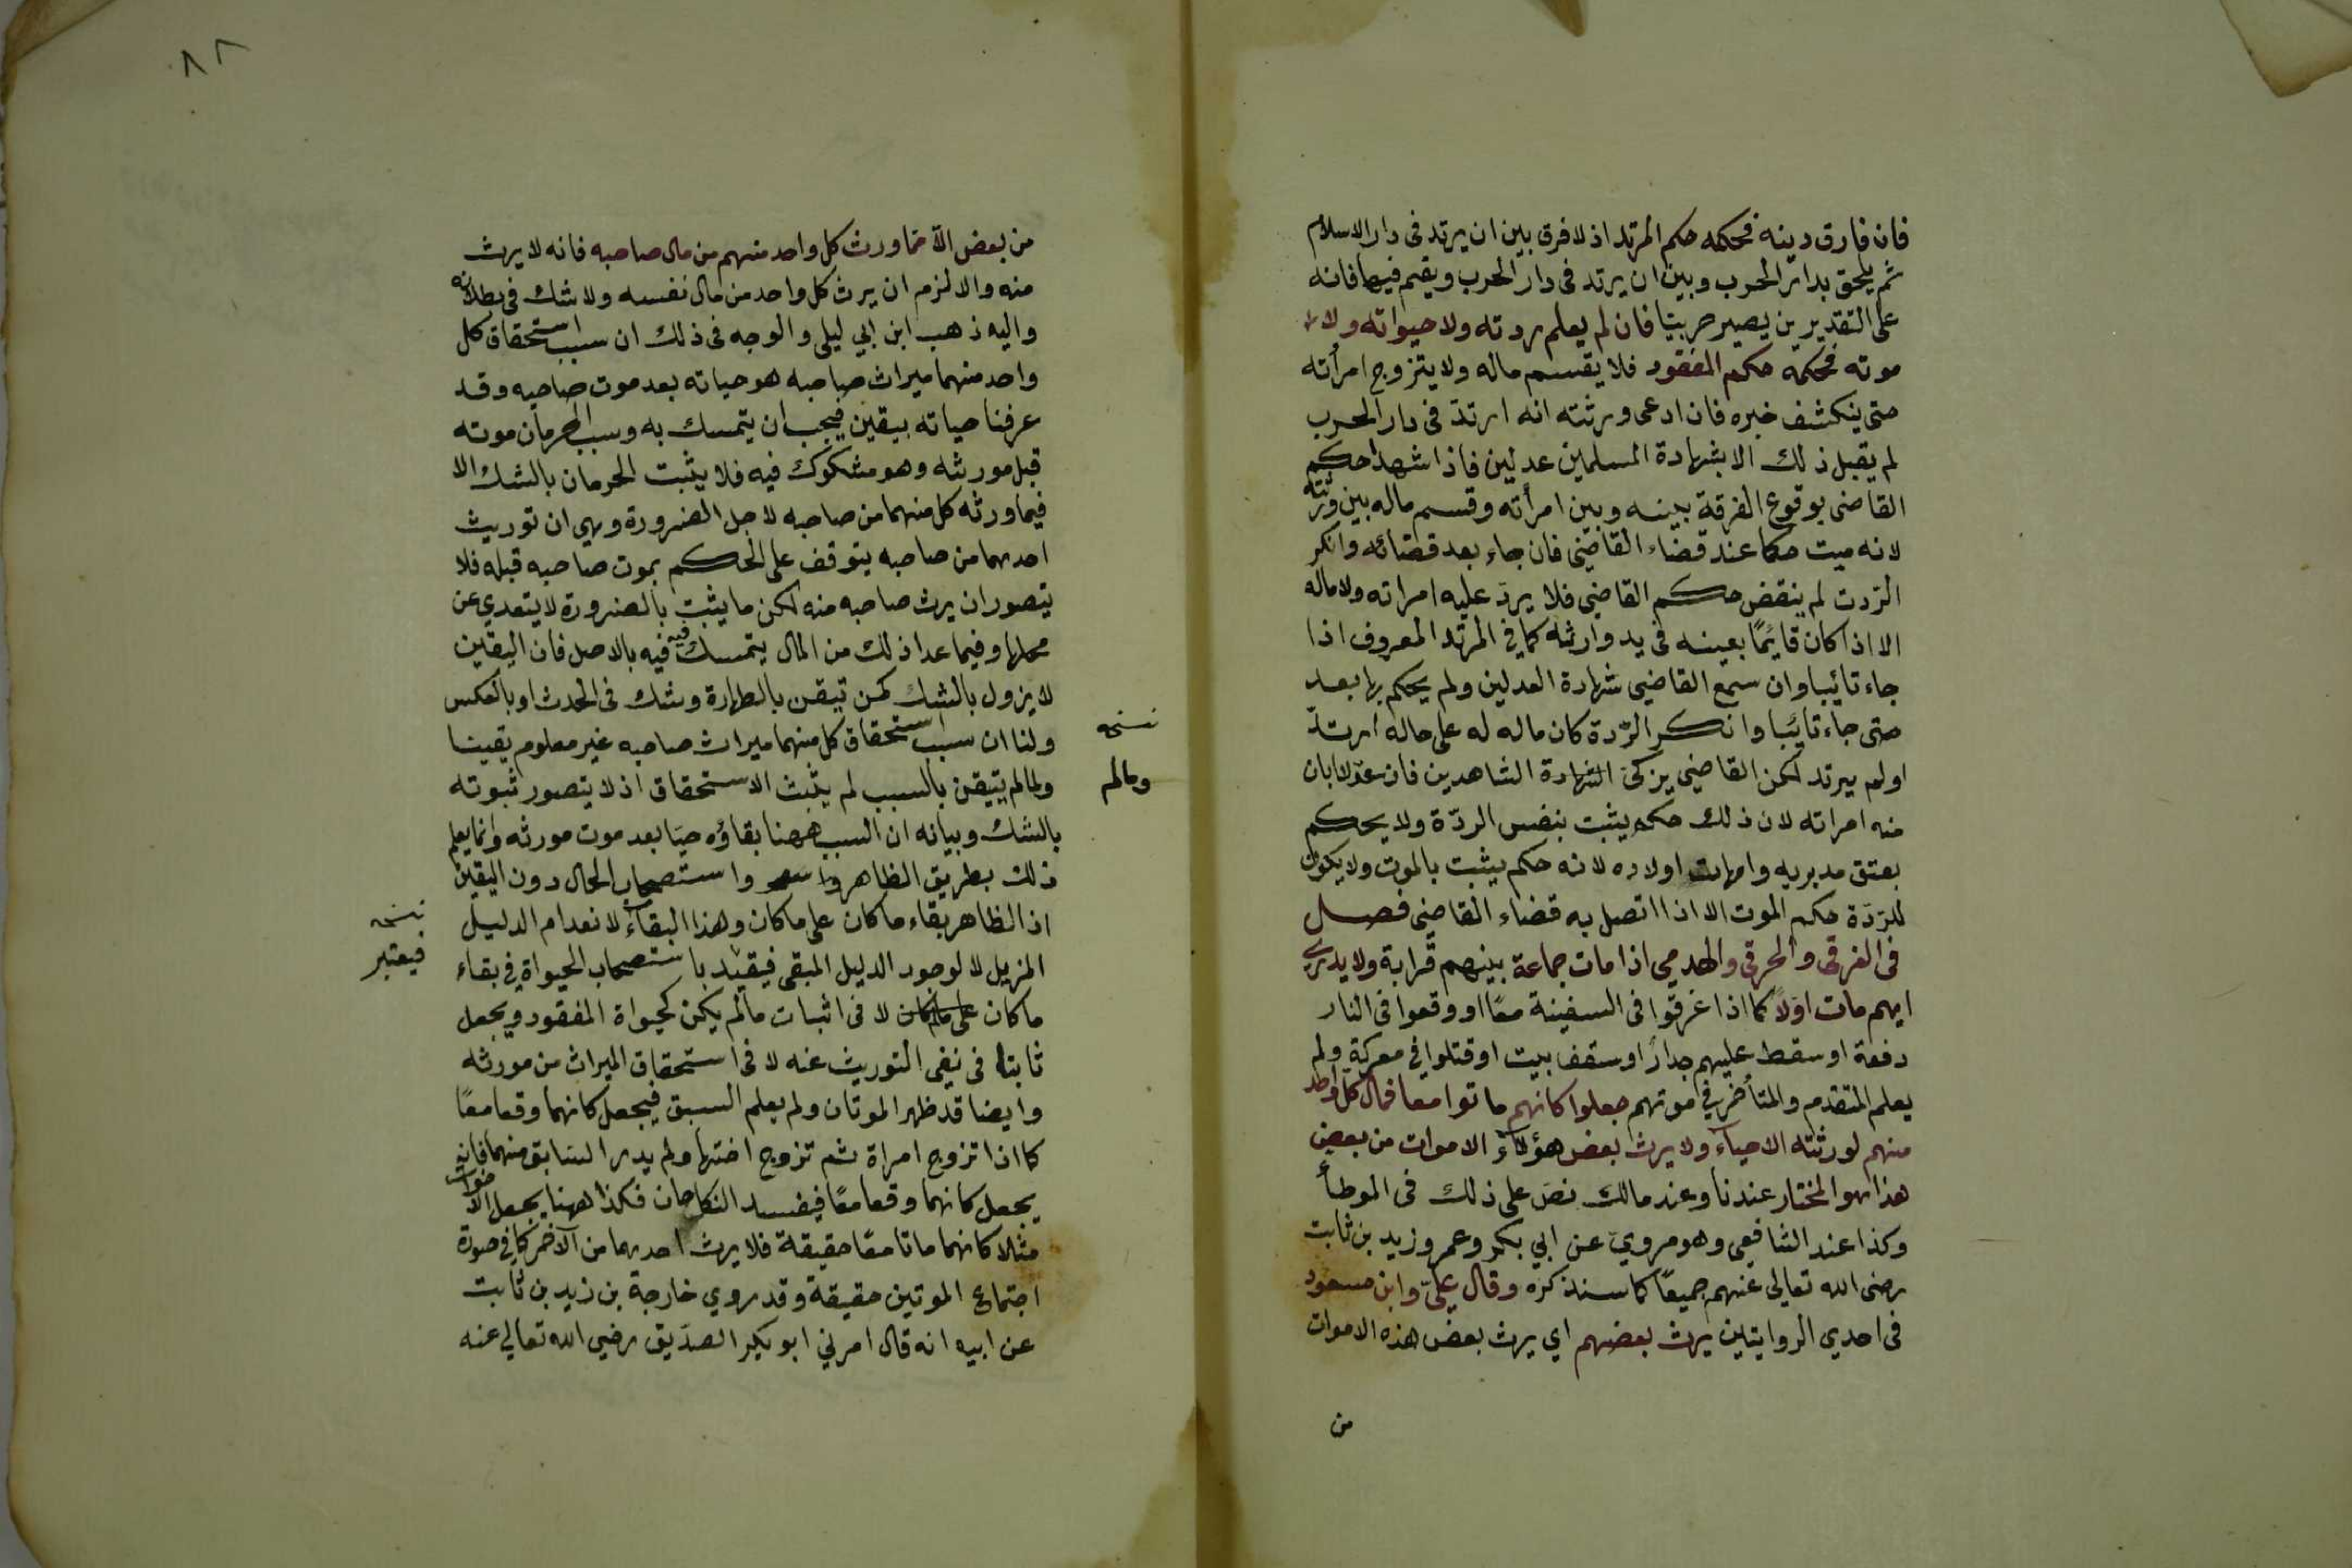 فان فارق دينه فحكمه حكم المرتد اذ لا فرق بين ان يرتد فى دار الاسلام
ثم يلحق بدار الحرب وبين ان يرتد فى دار الحرب ويقيم فيها فانه
على التقديرين يصير حربيّا فان لم يعلم ردته ولا حيواته ولا
موته فحكمه حكم المفقود فلا يقسم ماله ولا يتزوج امرأته
حتى ينكشف خبره فان ادعى ورثته انه ارتدّ فى دار الحرب
لم يقبل ذلك الا بشهادة المسلمين عدلين فاذا شهدا حكم
القاضى بوقوع الفرقة بينه وبين امرأته وقسم ماله بين ورثته
لانه ميت حكما عند قضاء القاضى فان جاء بعد قضائه وانكر
الردت لم ينقض حكم القاضي فلا يردّ عليه امراته ولا ماله
الا اذا كان قايمًا بعينه فى يد وارثه كما فى المرتد المعروف اذا
جاء تائبا وان سمع القاضي شهادة العدلين ولم يحكم بها بعد
حتى جاء تائبا وانكر الرّدة كان ماله له على حاله ارتدّ
اولم يرتد لكن القاضي يزكى الشهادة الشاهدين فان عدّلا بان
منه امراته لان ذلك حكم يثبت بنفس الردّة ولا يحكم
بعتق مدبريه وامهات اولاده لانه حكم يثبت بالموت ولا يكون
للرّدّة حكم الموت الا اذا اتصل به قضاء القاضى فصل
فى الغرقى والحرقى والهدمى اذا مات جماعة بينهم قرابة ولا يدرى
ايهم مات اوّلاً كما اذا غرقوا فى السفينة معًا او وقعوا فى النار
دفعة او سقط عليهم جدارً او سقف بيت او قتلوا في معركة ولم
يعلم المتقدم والمتأخر في موتهم جعلوا كانهم ماتوا معا فمال كل واحد
منهم لورثته الاحياء ولا يرث بعض هؤلاء الاموات من بعض
هذا هو المختار عندنا وعند مالك نصّ على ذلك فى الموطأ
وكذا عند الشافعى وهو مرويّ عن ابي بكر وعمر وزيد بن ثابت
رضى الله تعالى عنهم جميعًا كما سنذكره وقال عليّ وابن مسعود
فى احدي الروايتين يرث بعضهم اي يرث بعض هذه الاموات
من
٨٢
من بعض الاّ مما ورث كل واحد منهم من مال صاحبه فانه لا يرث
منه والا لزم ان يرث كل واحد من مال نفسه ولا شك فى بطلانه
واليه ذهب ابن ابي ليلى والوجه فى ذلك ان سبب استحقاق كل
واحد منهما ميراث صاحبه هو حياته بعد موت صاحبه وقد
عرفنا حياته بيقين فيجب ان يتمسك به وسبب الحرمان موته
قبل مورثه وهو مشكوك فيه فلا يثبت الحرمان بالشك الا
فيما ورثه كل منهما من صاحبه لاجل الضرورة وهي ان توريث
احدهما من صاحبه يتوقف على الحكم بموت صاحبه قبله فلا
يتصور ان يرث صاحبه منه لكن ما يثبت بالضرورة لا يتعدي عن
محلها وفيما عدا ذلك من المال يتمسك فيه فيه بالاصل فان اليقين
لا يزول بالشك كمن تيقن بالطهارة وشك فى الحدث او بالعكس
ولنا ان سبب استحقاق كل منهما ميراث صاحبه غير معلوم يقينا
ولما لم يتيقن بالسبب لم يثبت الاستحقاق اذ لا يتصور ثبوته
نسخه
وما لم
بالشك وبيانه ان السبب ههنا بقاؤه حيّا بعد موت مورثه وانما يعلم
ذلك بطريق الظاهر واستصحاب الحال دون اليقين
اذ الظاهر بقاء ما كان على ما كان وهذا البقاء لانعدام الدليل
المزيل لا لوجود الدليل المبقى فيقيّد باستصحاب الحيواة في بقاء
نسخه
فيعتبر
ما كان على ما كان لا فى اثبات ما لم يكن كحيواة المفقود ويجعل
ثابتا فى نفى التوريث عنه لا فى استحقاق الميراث من مورثه
وايضا قد ظهر الموتان ولم يعلم السبق فيجعل كانهما وقعا معًا
كما اذا تزوج امراة ثم تزوج اختها ولم يدر السابق منهما فانه
يجعل كانهما وقعا معًا فيفسد النكاحان فكذا ههنا يجعل الاخوان
مثلا كانهما ماتا معًا حقيقة فلا يرث احدهما من الآخر كما في صورة
اجتماع الموتين حقيقة وقد روي خارجة بن زيد بن ثابت
عن ابيه انه قال امرني ابو بكر الصدّيق رضي الله تعالي عنه